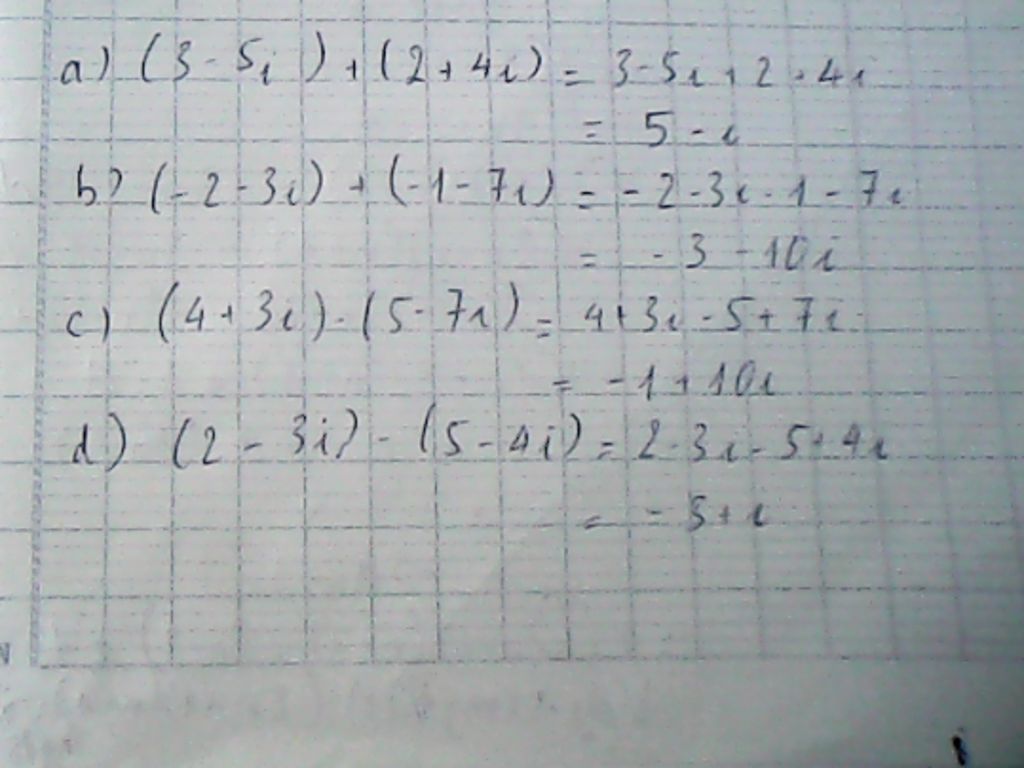 a) (3 - 5i) + (2 + 4i) = 3 - 5i + 2 + 4i
= 5 - i
b) (-2 - 3i) + (-1 - 7i) = -2 - 3i - 1 - 7i
= -3 - 10i
c) (4 + 3i) - (5 - 7i) = 4 + 3i - 5 + 7i
= -1 + 10i
d) (2 - 3i) - (5 - 4i) = 2 - 3i - 5 + 4i
= -3 + i